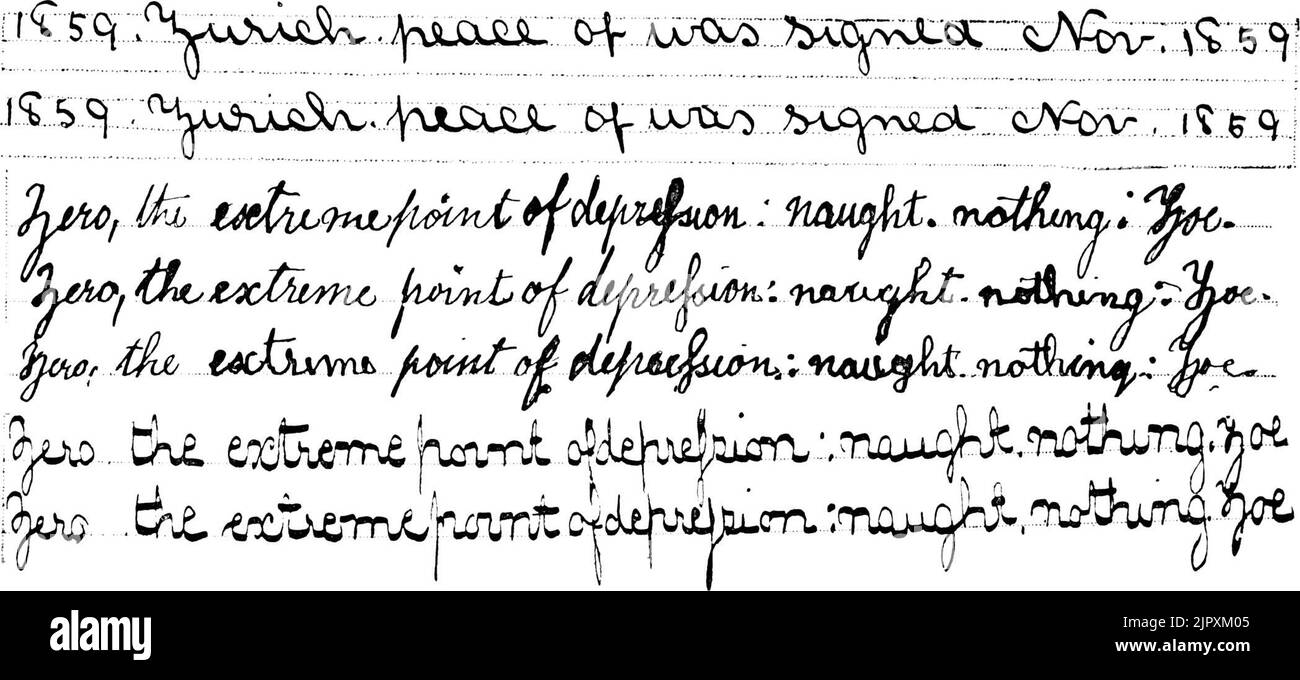 1859. Zurich. peace of was signed Nov. 1859
1859. Zurich. peace of was signed Nov. 1859
Zero, the extreme point of depression: naught. nothing: Zoe.
Zero, the extreme point of depression: naught. nothing: Zoe.
Zero, the extreme point of depression: naught. nothing: Zoe.
Zero the extreme point of depression: naught. nothing. Zoe
Zero the extreme point of depression: naught. nothing Zoe
alamy
Image ID: 2JPXM05
www.alamy.com